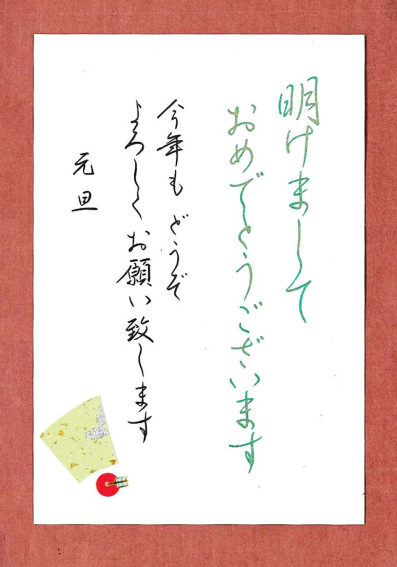 明けまして
おめでとうございます
今年もどうぞ
よろしくお願い致します
元旦